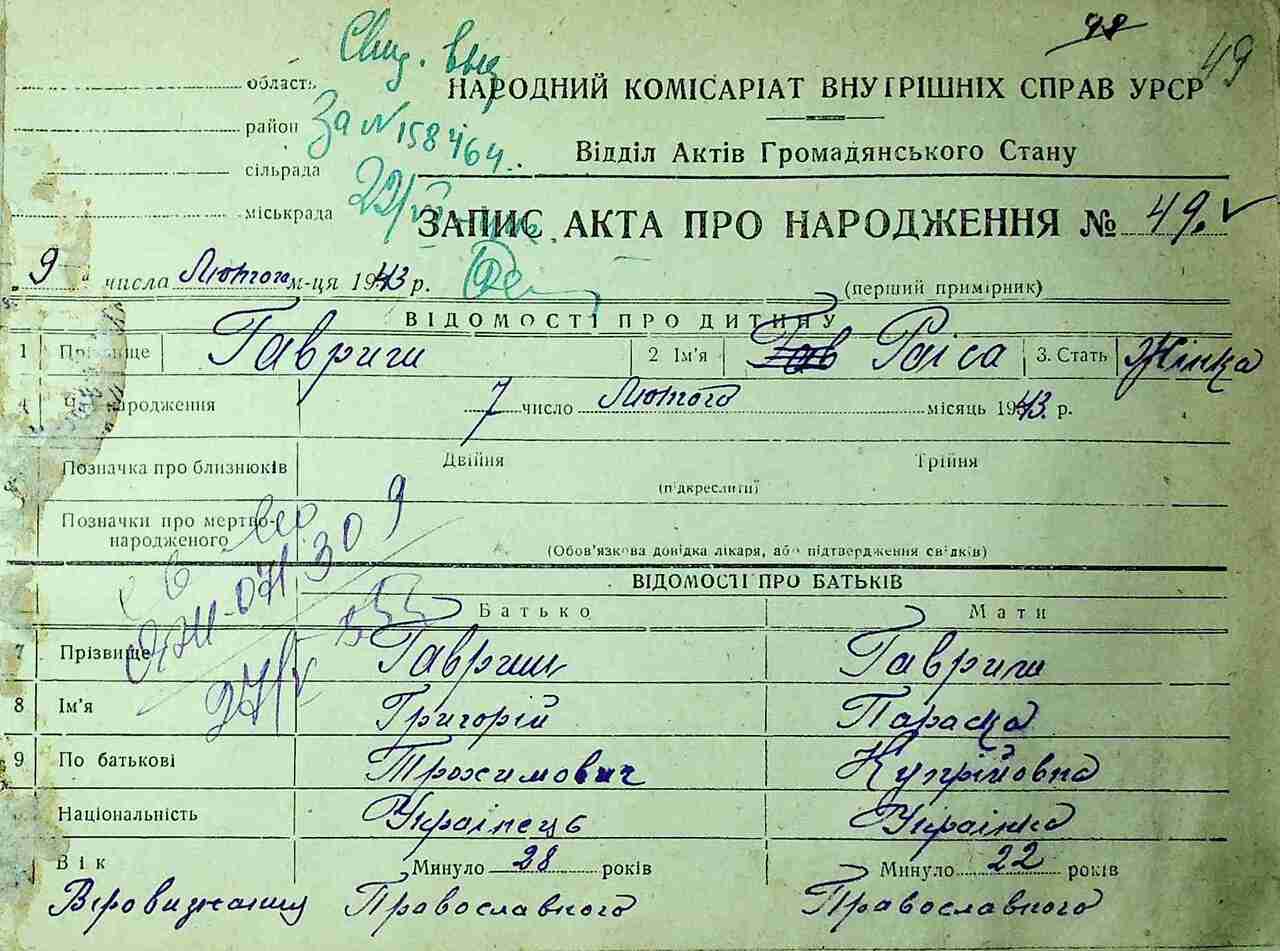 98
49
Свид. выд
За N 158464.
область
район
сільрада
міськрада
НАРОДНИЙ КОМІСАРІАТ ВНУТРІШНІХ СПРАВ УРСР
Відділ Актів Громадянського Стану
ЗАПИС АКТА ПРО НАРОДЖЕННЯ № 49.
9 числа Лютого м-ця 1943 р.
(перший примірник)
ВІДОМОСТІ ПРО ДИТИНУ
1 Прізвище Гавриш 2 Ім'я Раіса 3. Стать Жінка
4 народження 7 число Лютого місяць 1943. р.
Позначка про близнюків Двійня Трійня
(підкреслити)
Позначки про мертво-
народженого
(Обов'язкова довідка лікаря, або підтвердження свідків)
ВІДОМОСТІ ПРО БАТЬКІВ
Батько Мати
7 Прізвище Гавриш Гавриш
8 Ім'я Григорій Параска
9 По батькові Трохимович Купрійовна
Національність Українець Українка
Вік Минуло 28 років Минуло 22 років
Православного Православного